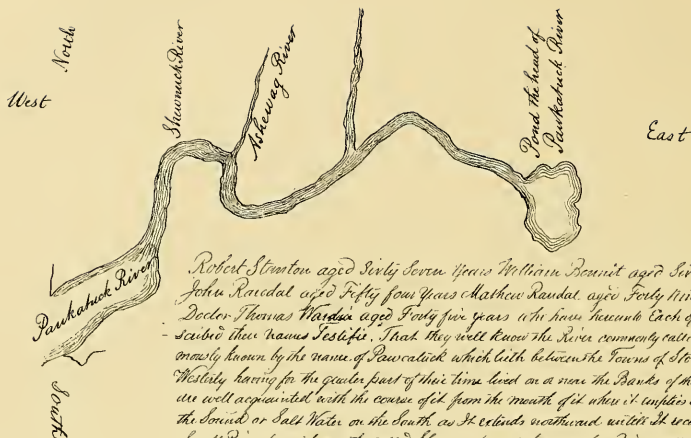 North
West
Shewnuck River
Ashewag River
Pond the head of
Paukatuck River
East
Paukatuck River
South
Robert Stanton aged Sixty Seven Years William Bennit aged Six
John Randal aged Fifty four Years Mathew Randal aged Forty Nin
Docter Thomas aged Forty five years who have hereunto Each of
scribed their names Testifie, That they well know the River commonly calle
monly known by the name of Pawcatuck which lieth between the Towns of Sto
Westerly having for the greater part of their time lived on or near the Banks of th
are well acquainted with the course of it from the mouth of it where it empties
the Sound or Salt Water on the South as It extends northward untill It rece